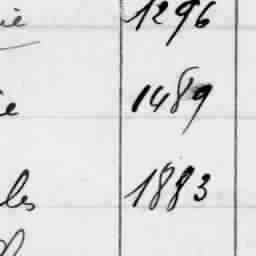 ie 1296
ie 1489
les 1883